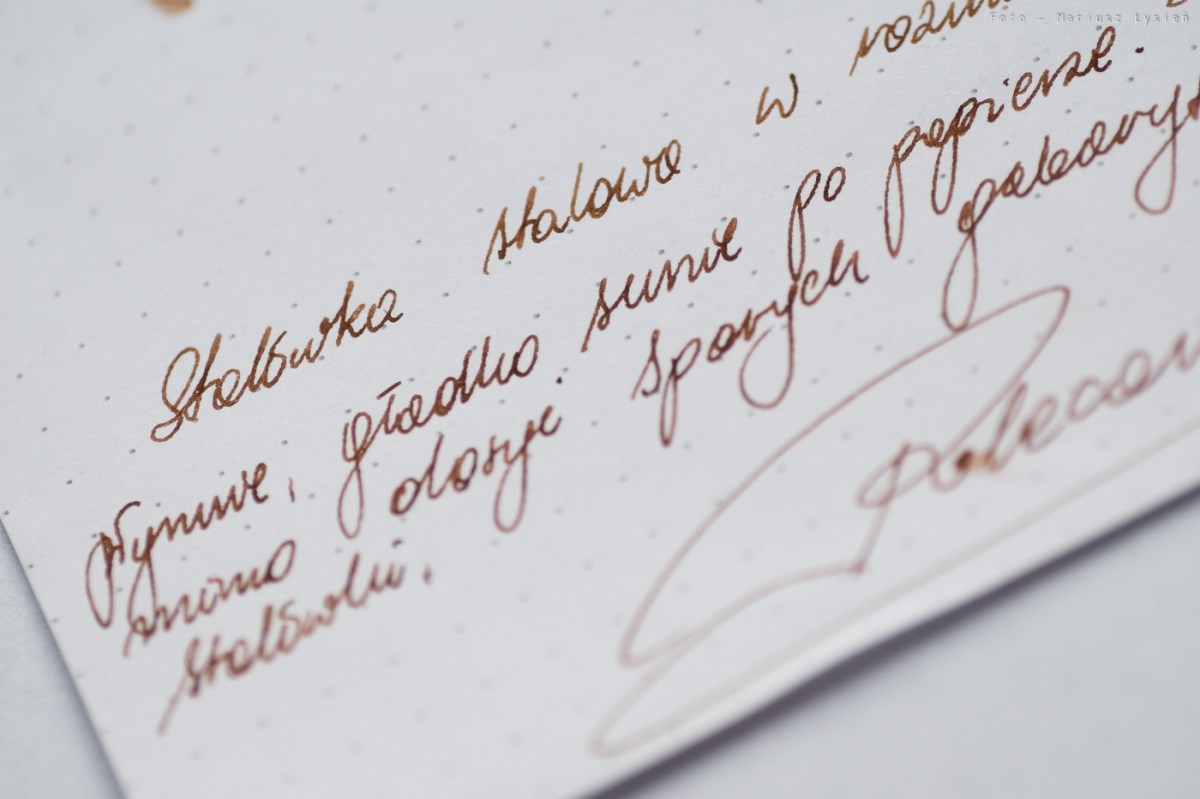 Foto - Mariusz Łysień
Stalówka stalowa w rozm
płynnie, gładko sunie po papierze.
mimo dosyć sporych gabaryt
stalówki.
Polecam